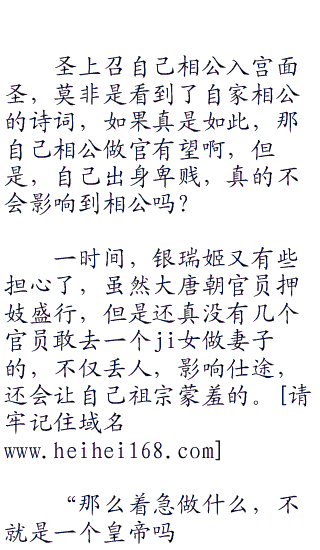 圣上召自己相公入宫面
圣，莫非是看到了自家相公
的诗词，如果真是如此，那
自己相公做官有望啊，但
是，自己出身卑贱，真的不
会影响到相公吗？
一时间，银瑞姬又有些
担心了，虽然大唐朝官员押
妓盛行，但是还真没有几个
官员敢去一个ji女做妻子
的，不仅丢人，影响仕途，
还会让自己祖宗蒙羞的。[请
牢记住域名
www.heihei168.com]
“那么着急做什么，不
就是一个皇帝吗